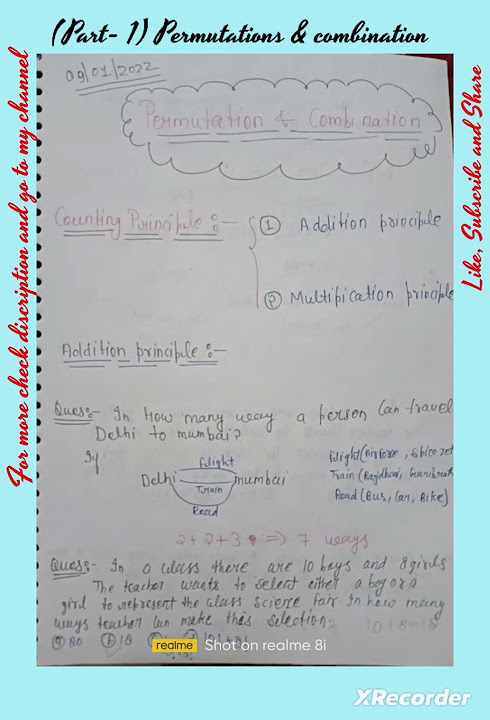 (Part- 1) Permutations & combination
For more check discription and go to my channel
Like, Subscribe and Share
09/01/2022
Permutation & Combination
Counting Principle :-
① Addition principle
② Multipication principle
Addition principle :-
Ques:- In How many way a person Can travel
Delhi to mumbai?
If
Flight
Delhi mumbai
Train
Road
Flight (Airforce, Spice jet
Train (Rajdhani, Garibrath
Road (Bus, Car, Bike)
2+2+3 => 7 ways
Ques:- In a class there are 10 boys and 8 girls
The teacher wants to select either a boy or a
girl to represent the class science fair In how many
ways teacher can make this selection:-
10+8=18
ⓐ 80 ⓑ 18
realme Shot on realme 8i
XRecorder